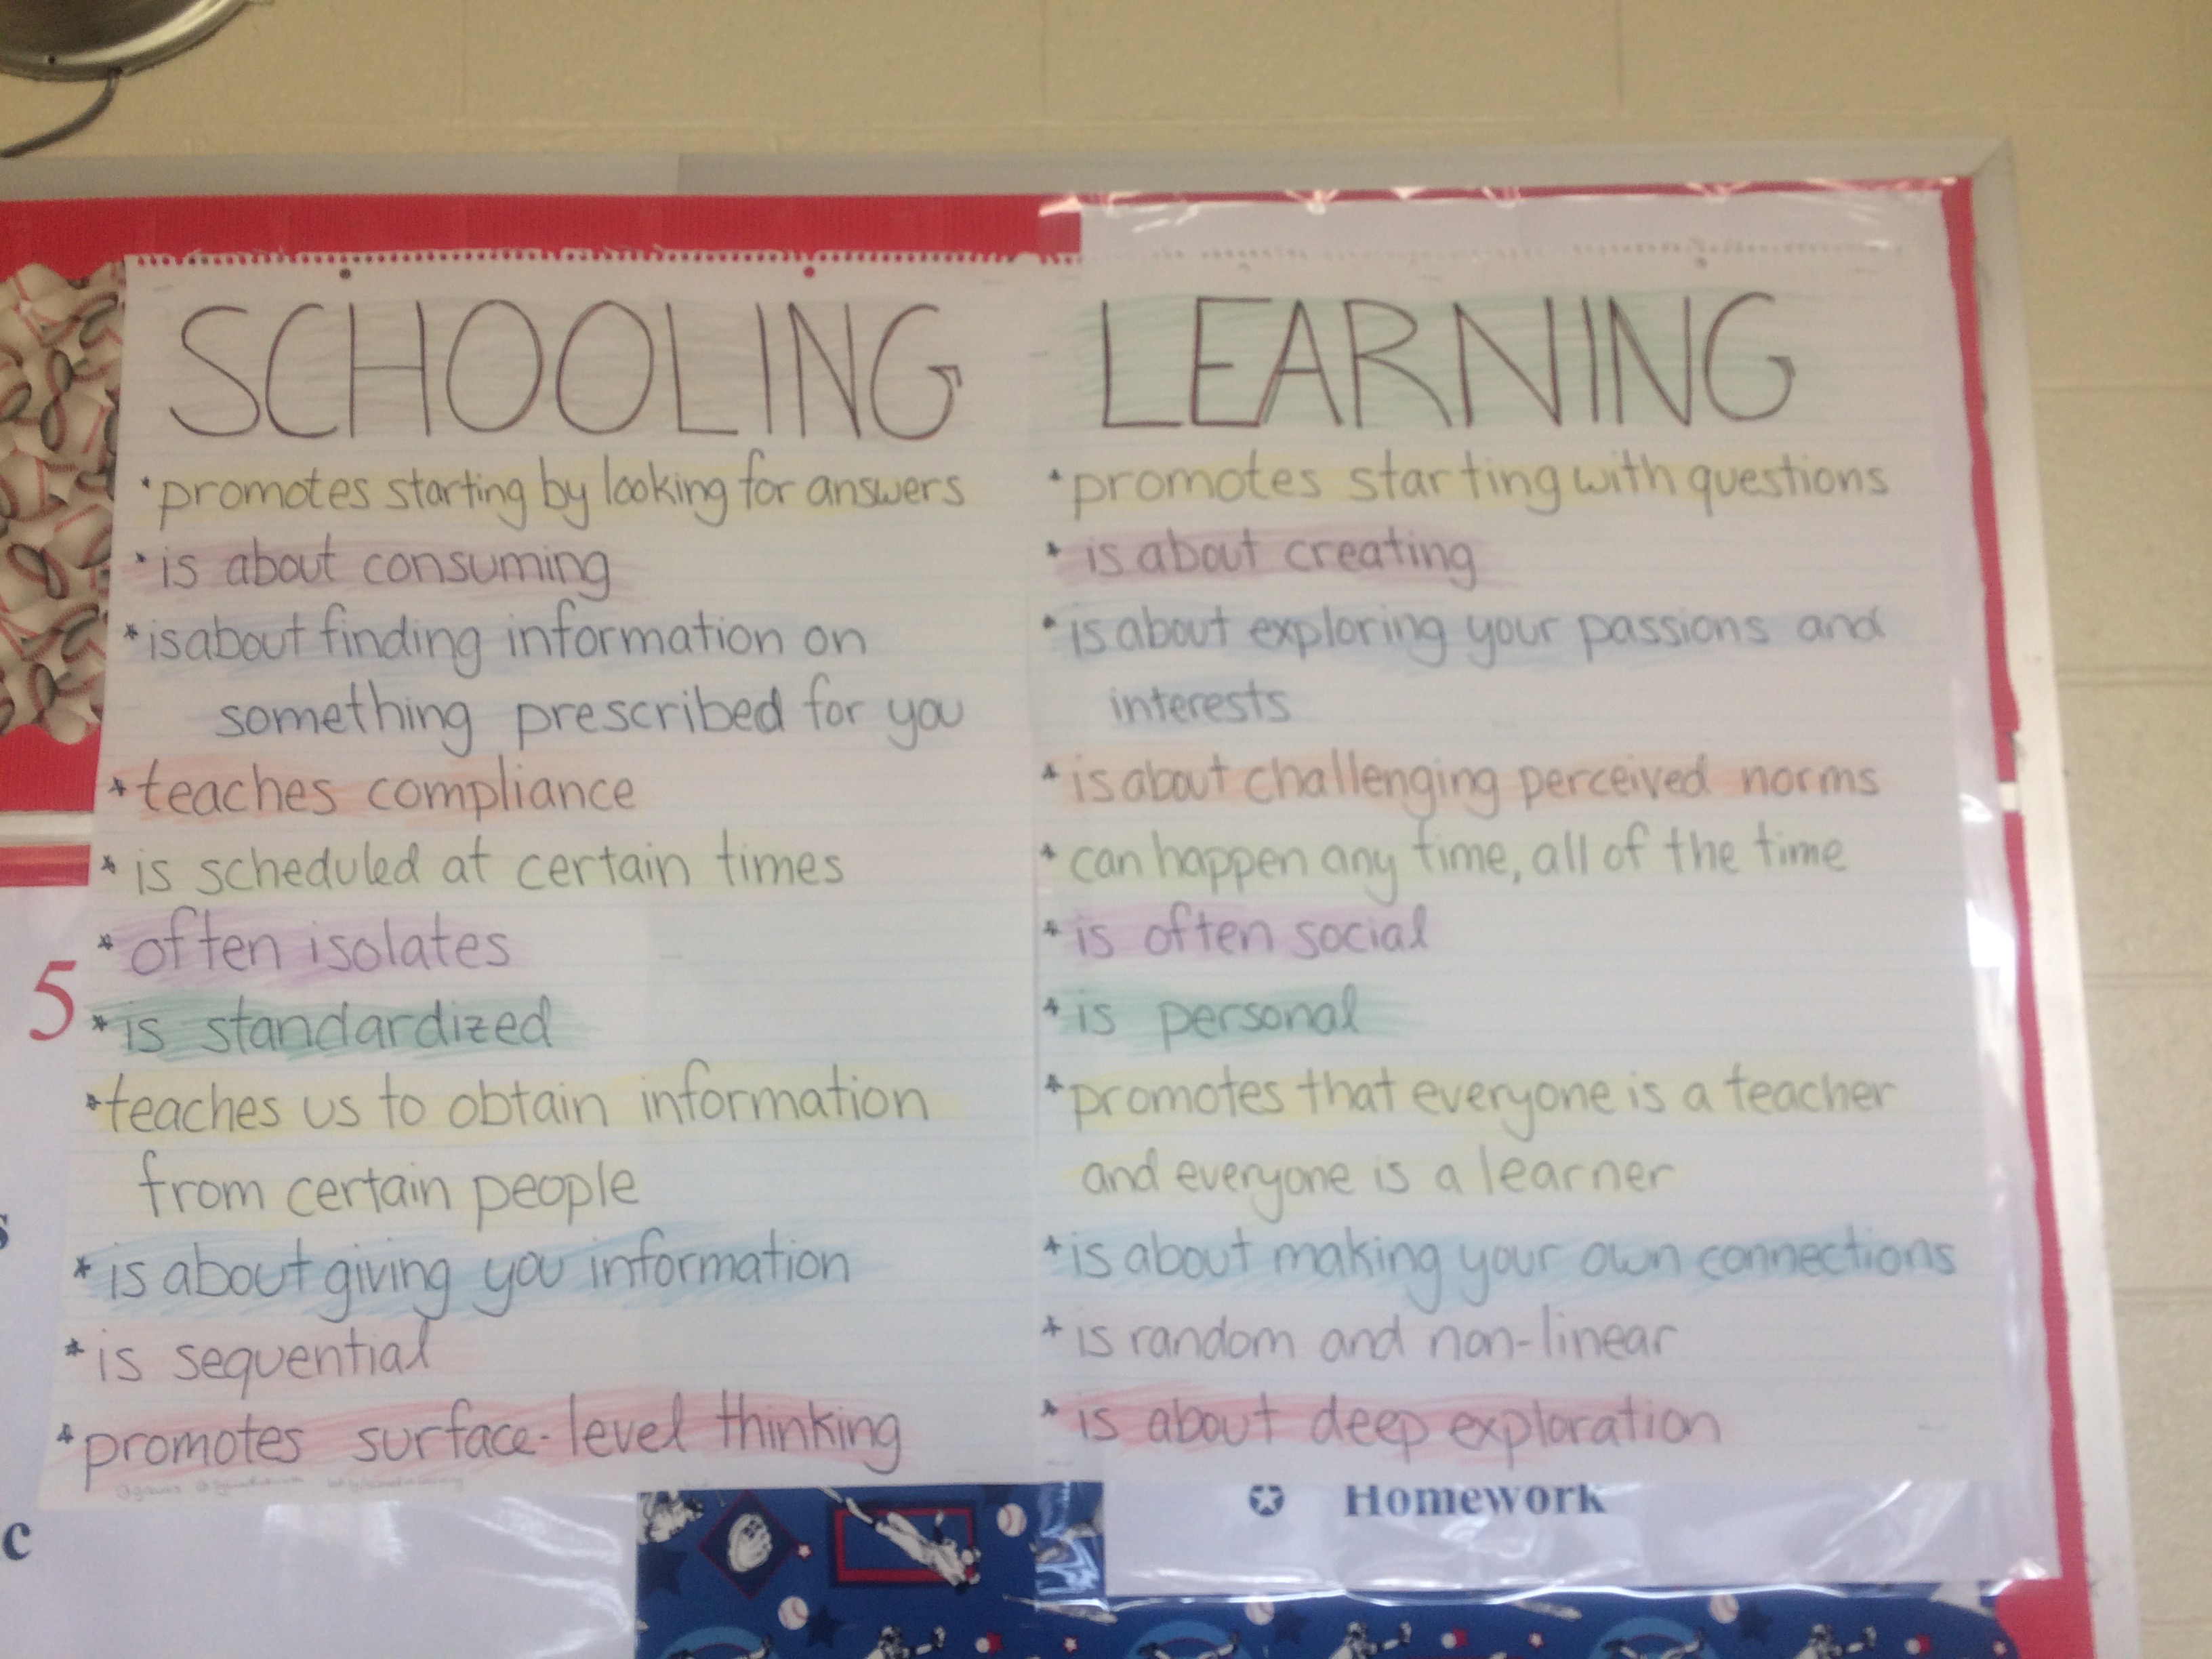 SCHOOLING
*promotes starting by looking for answers
*is about consuming
*is about finding information on
something prescribed for you
*teaches compliance
*is scheduled at certain times
*often isolates
*is standardized
*teaches us to obtain information
from certain people
*is about giving you information
*is sequential
*promotes surface-level thinking
LEARNING
*promotes starting with questions
*is about creating
*is about exploring your passions and
interests
*is about challenging perceived norms
*can happen any time, all of the time
*is often social
*is personal
*promotes that everyone is a teacher
and everyone is a learner
*is about making your own connections
*is random and non-linear
*is about deep exploration
5
s
c
Homework